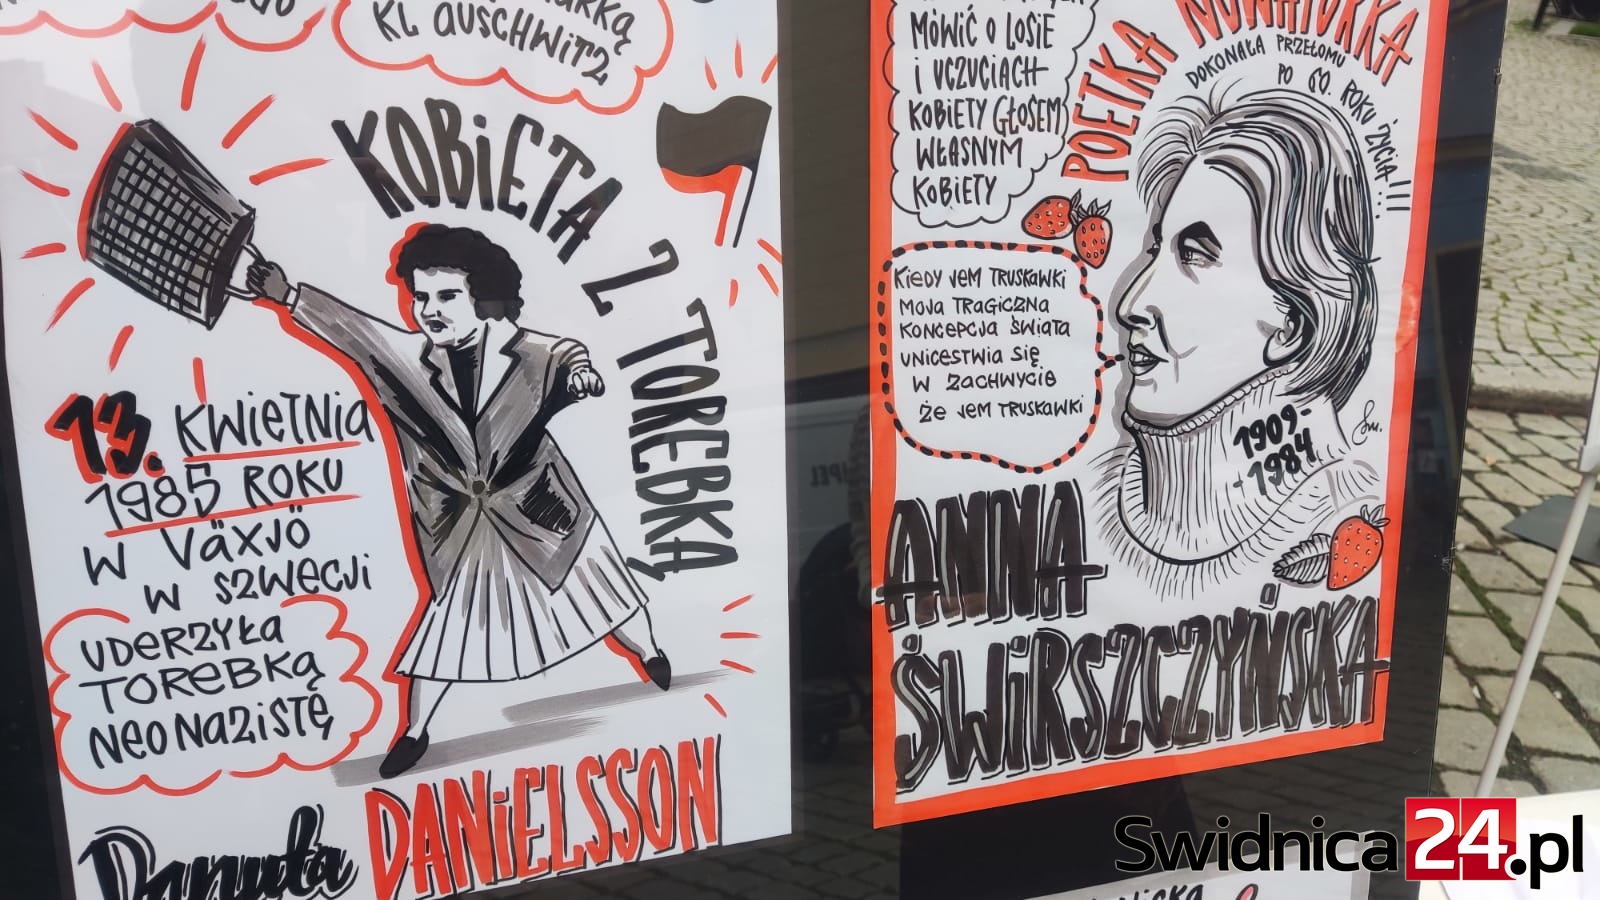 KL AUSCHWITZ
KOBIETA
Z TOREBKĄ
13. KWIETNIA
1985 ROKU
W VÄXJÖ
W SZWECJI
UDERZYŁA
TOREBKĄ
NEONAZISTĘ
Danuta DANIELSSON
MÓWIĆ O LOSIE
I UCZUCIACH
KOBIETY GŁOSEM
WŁASNYM
KOBIETY
POETKA NOWATORKA
DOKONAŁA PRZEŁOMU
PO 60. ROKU ŻYCIA!!!
KIEDY JEM TRUSKAWKI
MOJA TRAGICZNA
KONCEPCJA ŚWIATA
UNICESTWIA SIĘ
W ZACHWYCIE
ŻE JEM TRUSKAWKI
1909-
-1984
ANNA
ŚWIRSZCZYŃSKA
Swidnica24.pl